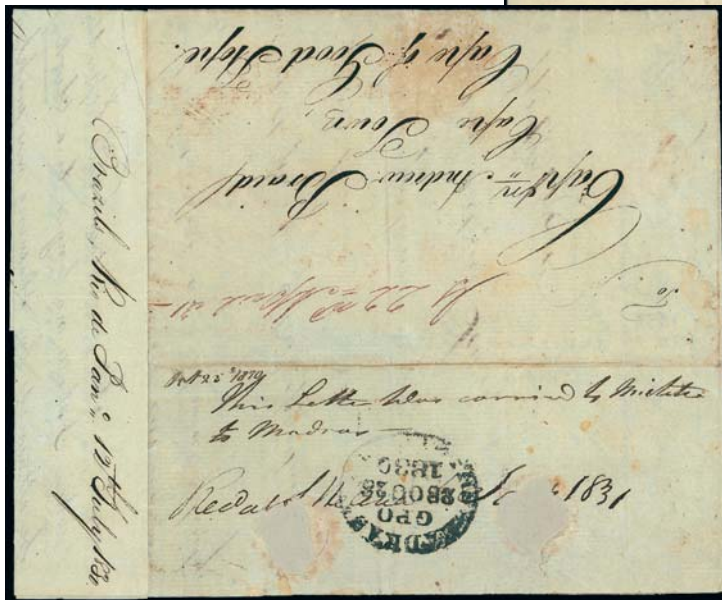 To
Capt.n Andrew Braid
Cape Town,
Cape of Good Hope.
22nd April 31
Oct 25 1879
This Letter Was carried by Mistake
to Madras
Recd at
1831
GPO
28 OC 28
1830
Brazils, Rio de Jan.o 13th July 1830